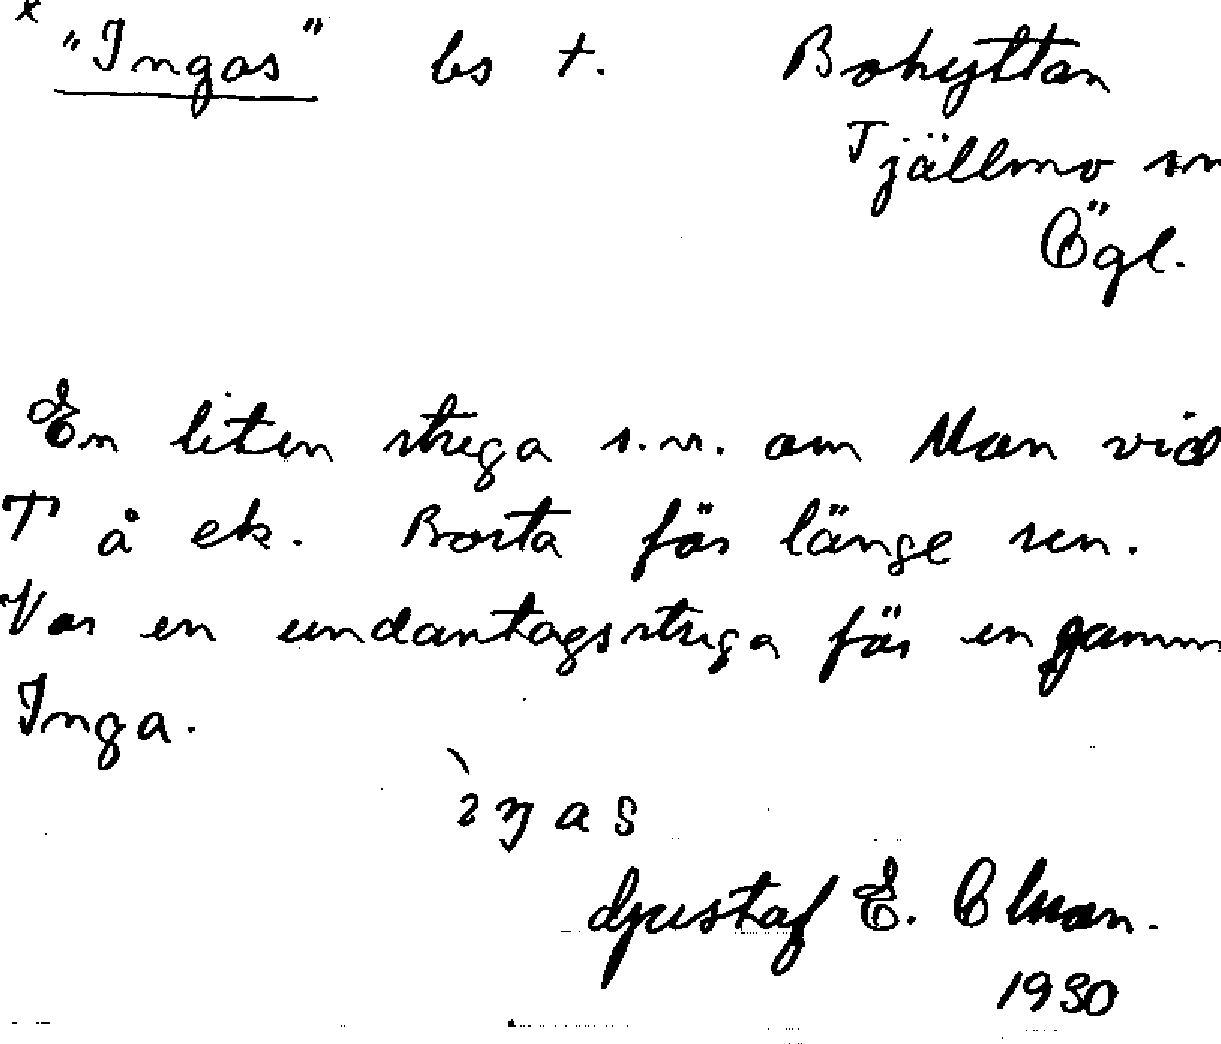 x "Ingas" ls t. Bohyttan
Tjällmo sn
Ögl.
En liten stuga s.v. om Man vid
T å ek. Borta för länge sen.
Var en undantagsstuga för en gamm
Inga.
ìŋas
Gustaf E.
1930